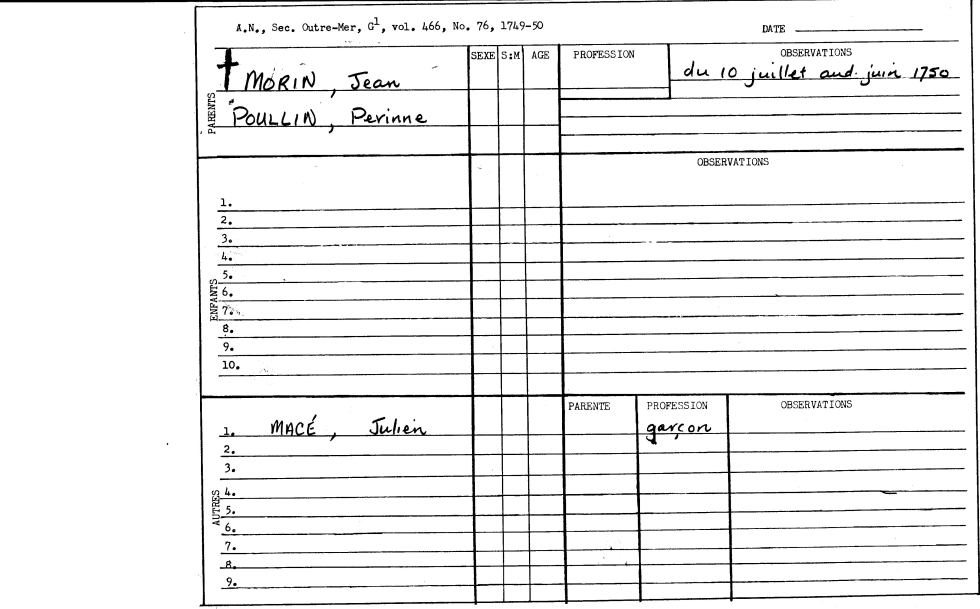 A.N., Sec. Outre-Mer, G1, vol. 466, No. 76, 1749-50 DATE
SEXE S:M AGE PROFESSION OBSERVATIONS
MORIN, Jean du 10 juillet aud. juin 1750
PARENTS
POULLIN, Perinne
OBSERVATIONS
ENFANTS
1.
2.
3.
4.
5.
6.
7.
8.
9.
10.
PARENTE PROFESSION OBSERVATIONS
AUTRES
1. MACÉ, Julien garçon
2.
3.
4.
5.
6.
7.
8.
9.